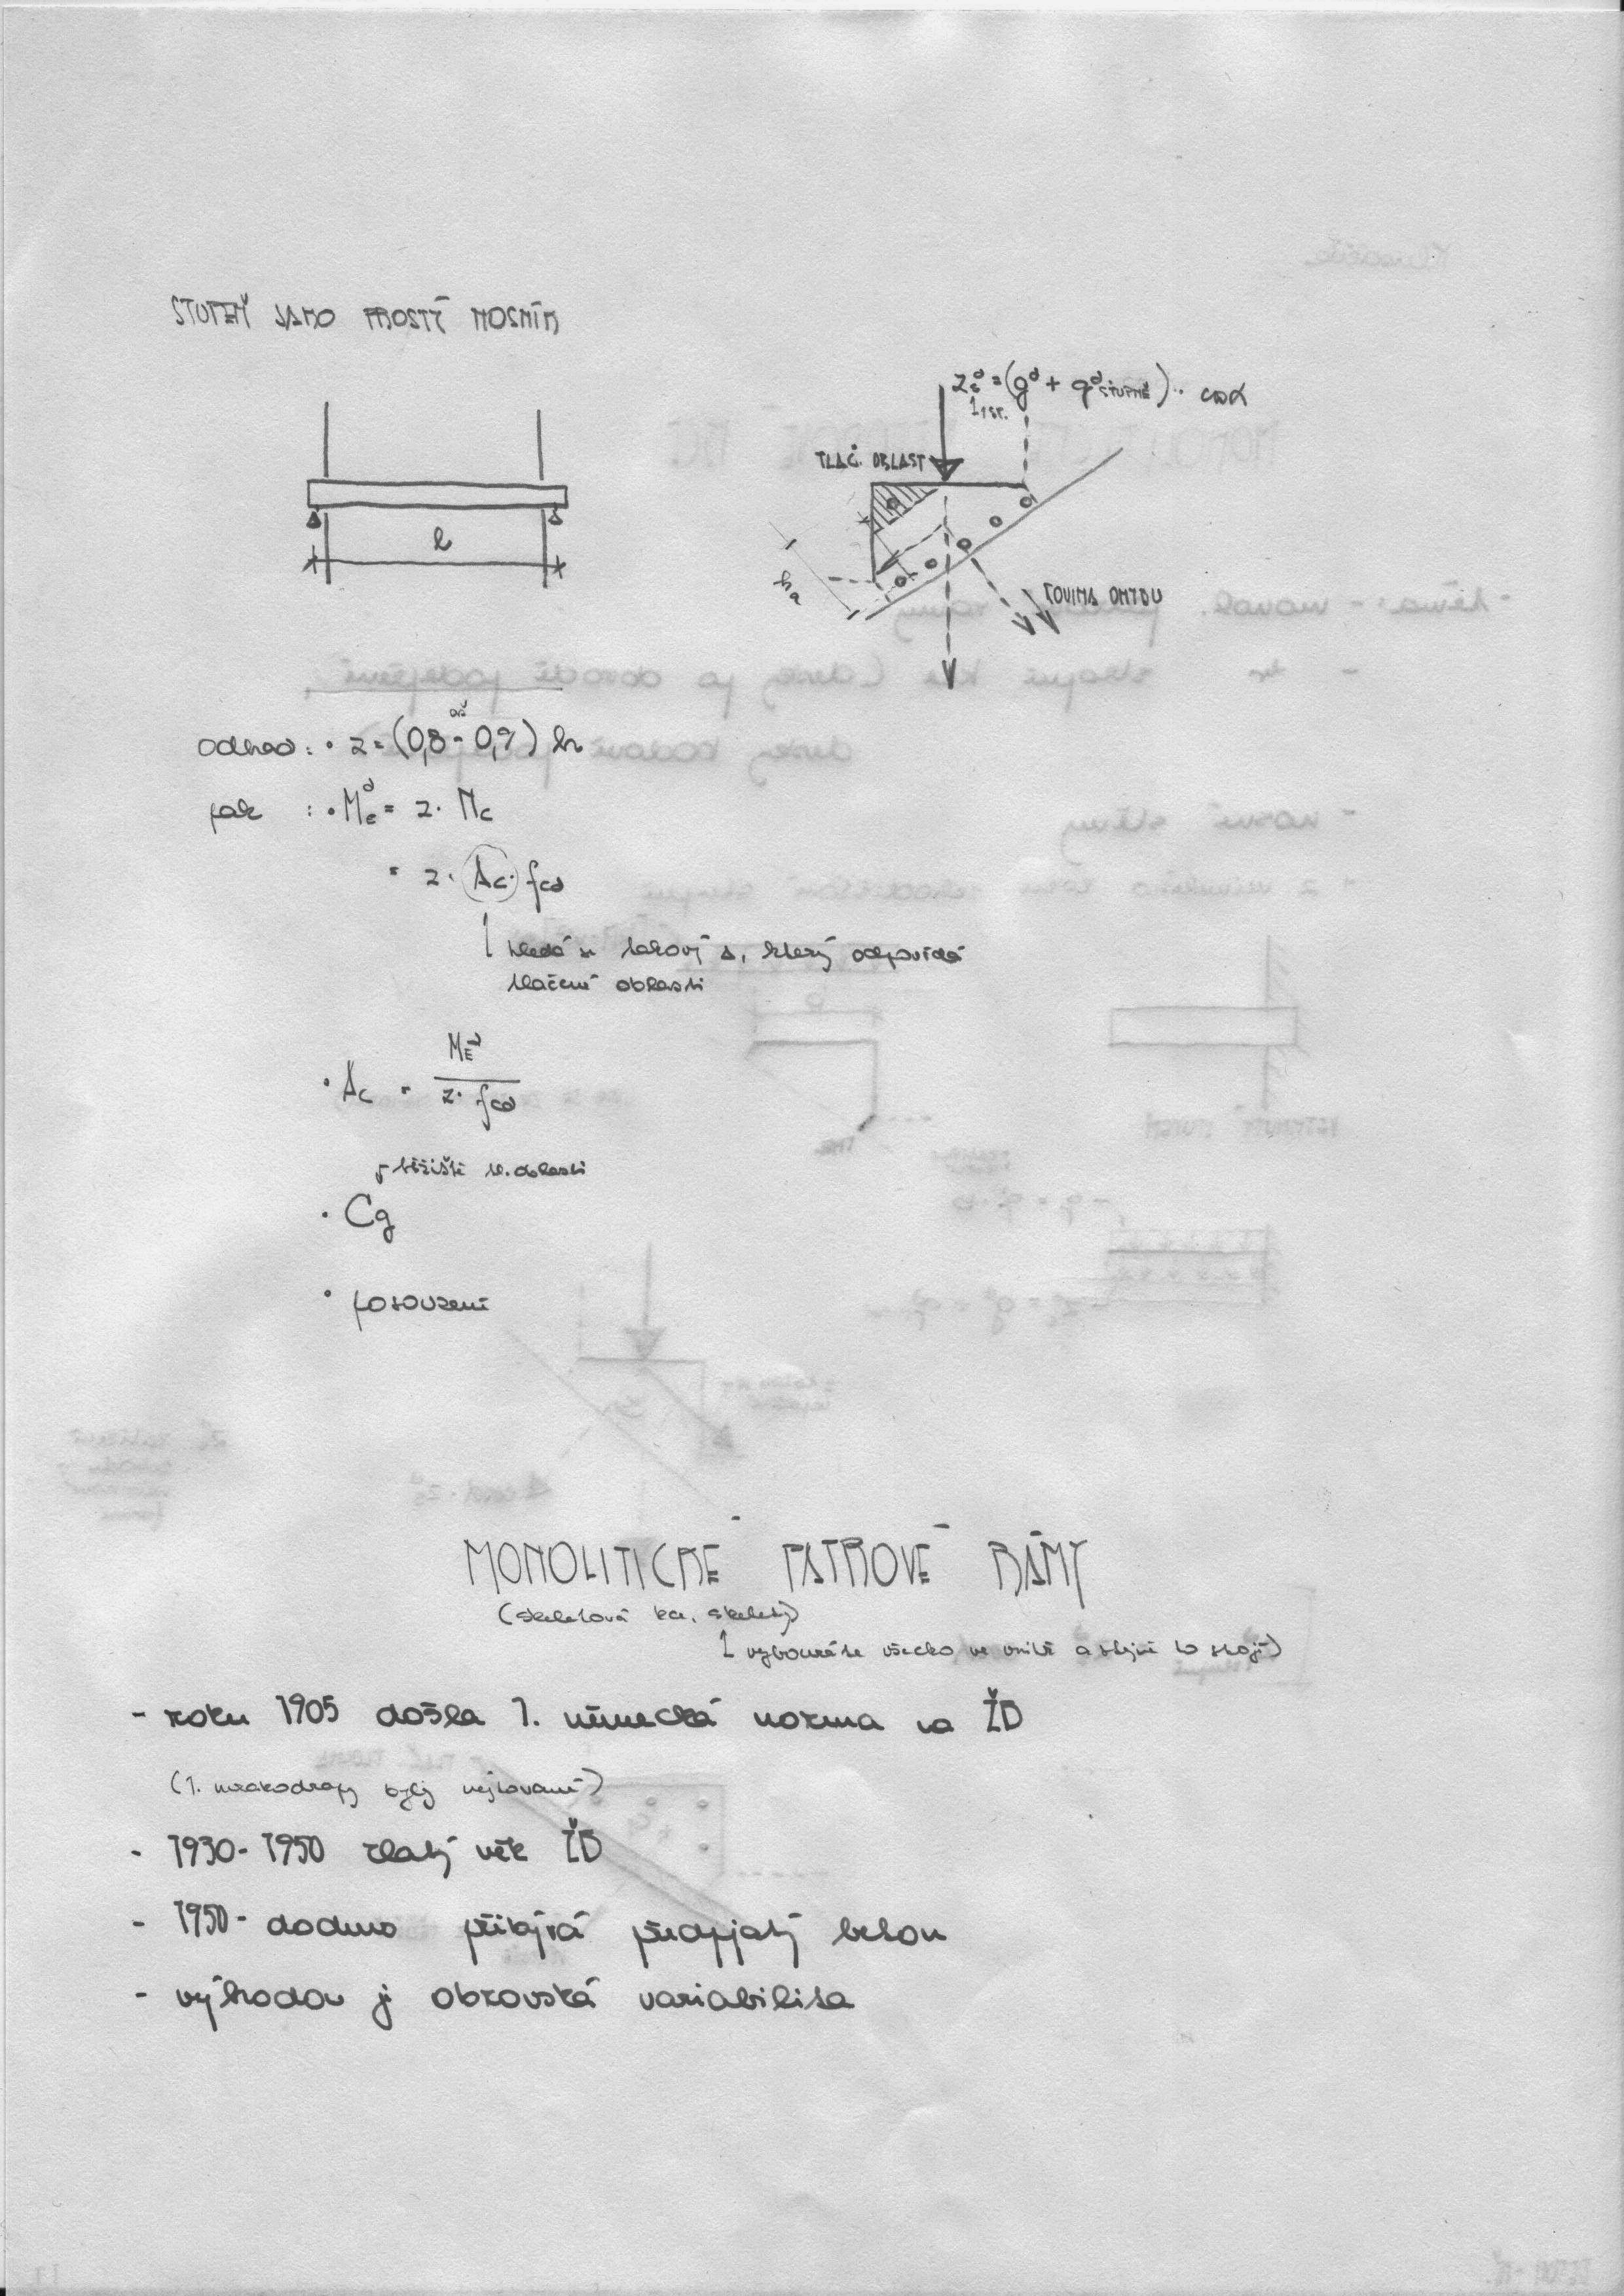 STUPEŇ JAKO PROSTÝ NOSNÍK
z_s^d = (g^d + q^d STUPNĚ) · cos α
1 st.
TLAČ. OBLAST
l
h
ROVINA OHYBU
odhad: • z = (0,8 až 0,9) h
pak : • M_E^d = z · N_c
= z · A_c · f_cd
hledá se takový A, který odpovídá
tlačené oblasti
• A_c = M_E^d / z · f_cd
těžiště tl. oblasti
• Cg
• posouzení
MONOLITICKÉ PATROVÉ RÁMY
(skeletová kce, skelety)
vybouráte všecko ve vnitř a stejně to stojí)
- roku 1905 došla 1. německá norma na ŽB
(1. mrakodrapy byly nejtované)
- 1930-1950 zlatý věk ŽB
- 1950- dodnes přibývá předpjatý beton
- výhodou je obrovská variabilita